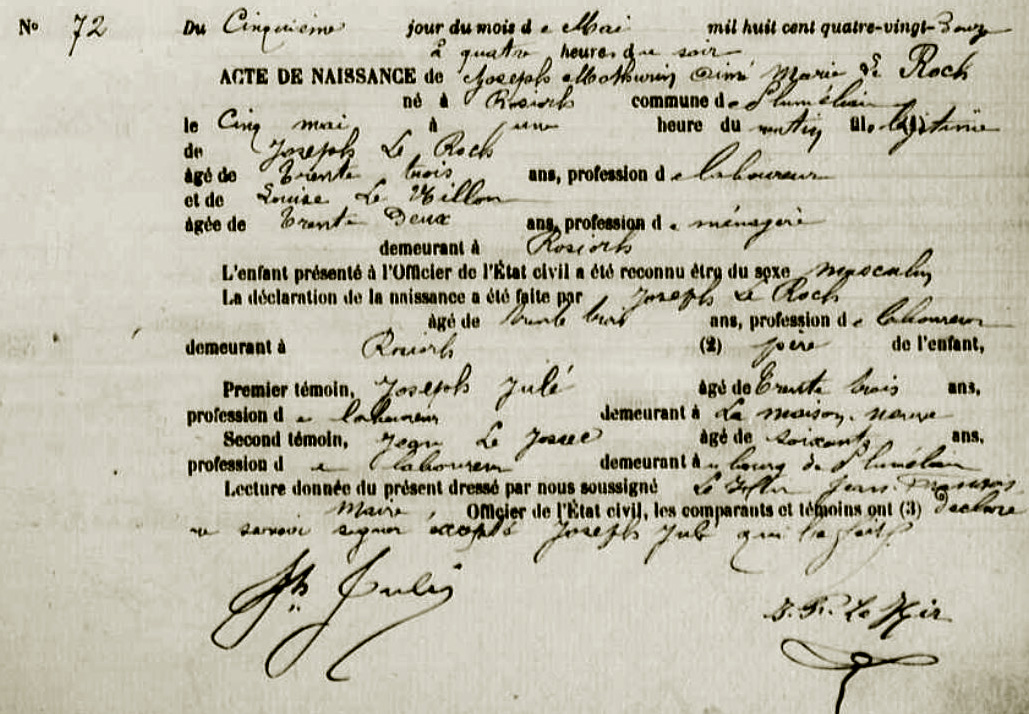 No 72 Du Cinquième jour du mois de Mai mil huit cent quatre-vingt-Douze
à quatre heures du soir
ACTE DE NAISSANCE de Joseph Mathurin Aimé Marie Le Roch
né à Rosiorh commune de Pluméliau
le Cinq mai à une heure du matin fils légitime
de Joseph Le Roch
âgé de Trente trois ans, profession de laboureur
et de Louise Le
âgée de Trente Deux ans, profession de ménagère
demeurant à Rosiorh
L'enfant présenté à l'Officier de l'État civil a été reconnu être du sexe masculin
La déclaration de la naissance a été faite par Joseph Le Roch
âgé de trente trois ans, profession de laboureur
demeurant à Rosiorh (2) père de l'enfant,
Premier témoin, Joseph Julé âgé de Trente trois ans,
profession de laboureur demeurant à La maison neuve
Second témoin, Le âgé de soixante ans,
profession de laboureur demeurant à bourg de Pluméliau
Lecture donnée du présent dressé par nous soussigné Le Jean François
Maire, Officier de l'État civil, les comparants et témoins ont (3) Déclaré
ne savoir signer excepté Joseph Julé qui l'a fait
Jh Julé
J. F. Le Hir